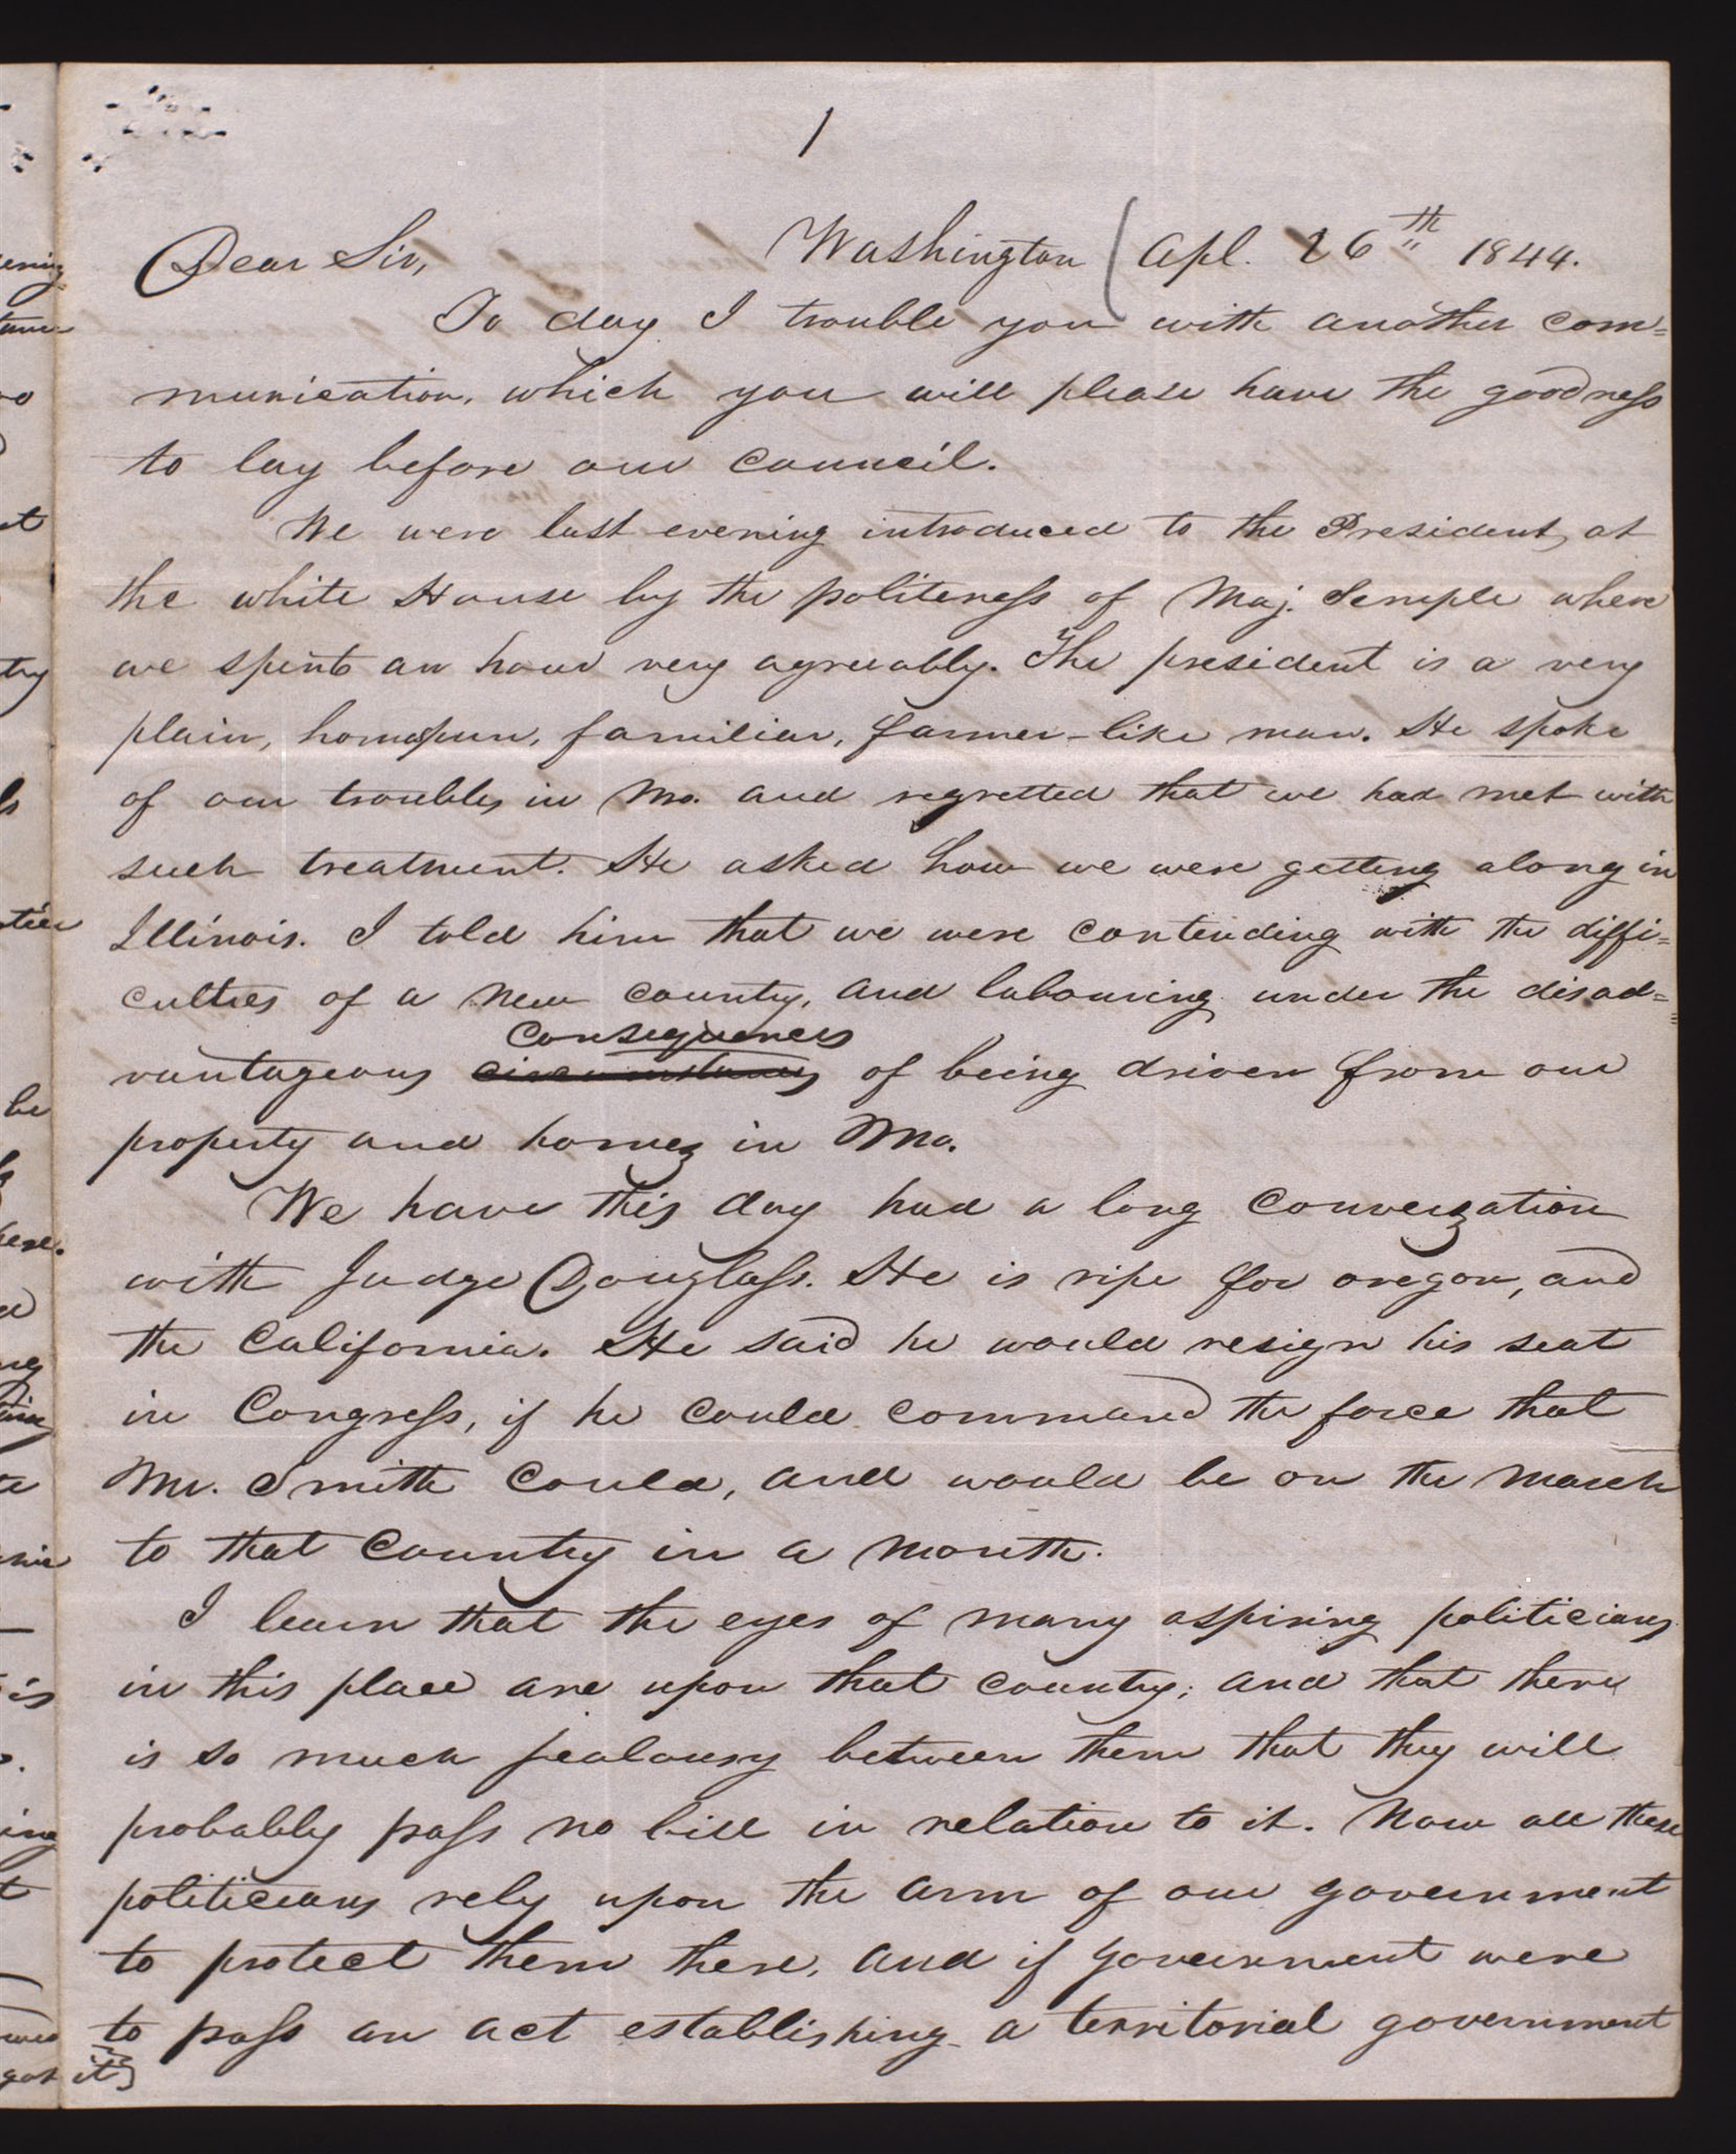 1
Dear Sir, Washington ( Apl. 26th 1844.
To day I trouble you with another com=
munication, which you will please have the goodness
to lay before our council.
We were last evening introduced to the President, at
the white House by the politeness of Maj. Semple where
we spent an hour very agreeably. The president is a very
plain, homespun, familiar, farmer-like man. He spoke
of our troubles in Mo. and regretted that we had met with
such treatment. He asked how we were getting along in
Illinois. I told him that we were contending with the diffi=
culties of a new county, and labouring under the disad=
consequences
vantageous circumstances of being driven from our
property and homes in Mo.
We have this day had a long conversation
with Judge Douglass. He is ripe for oregon, and
the California. He said he would resign his seat
in Congress, if he could command the force that
Mr. Smith could, and would be on the march
to that country in a month.
I learn that the eyes of many aspiring politicians
in this place are upon that country; and that there
is so much jealousy between them that they will
probably pass no bill in relation to it. Now all these
politicians rely upon the arm of our government
to protect them there, and if government were
to pass an act establishing a territorial government
it